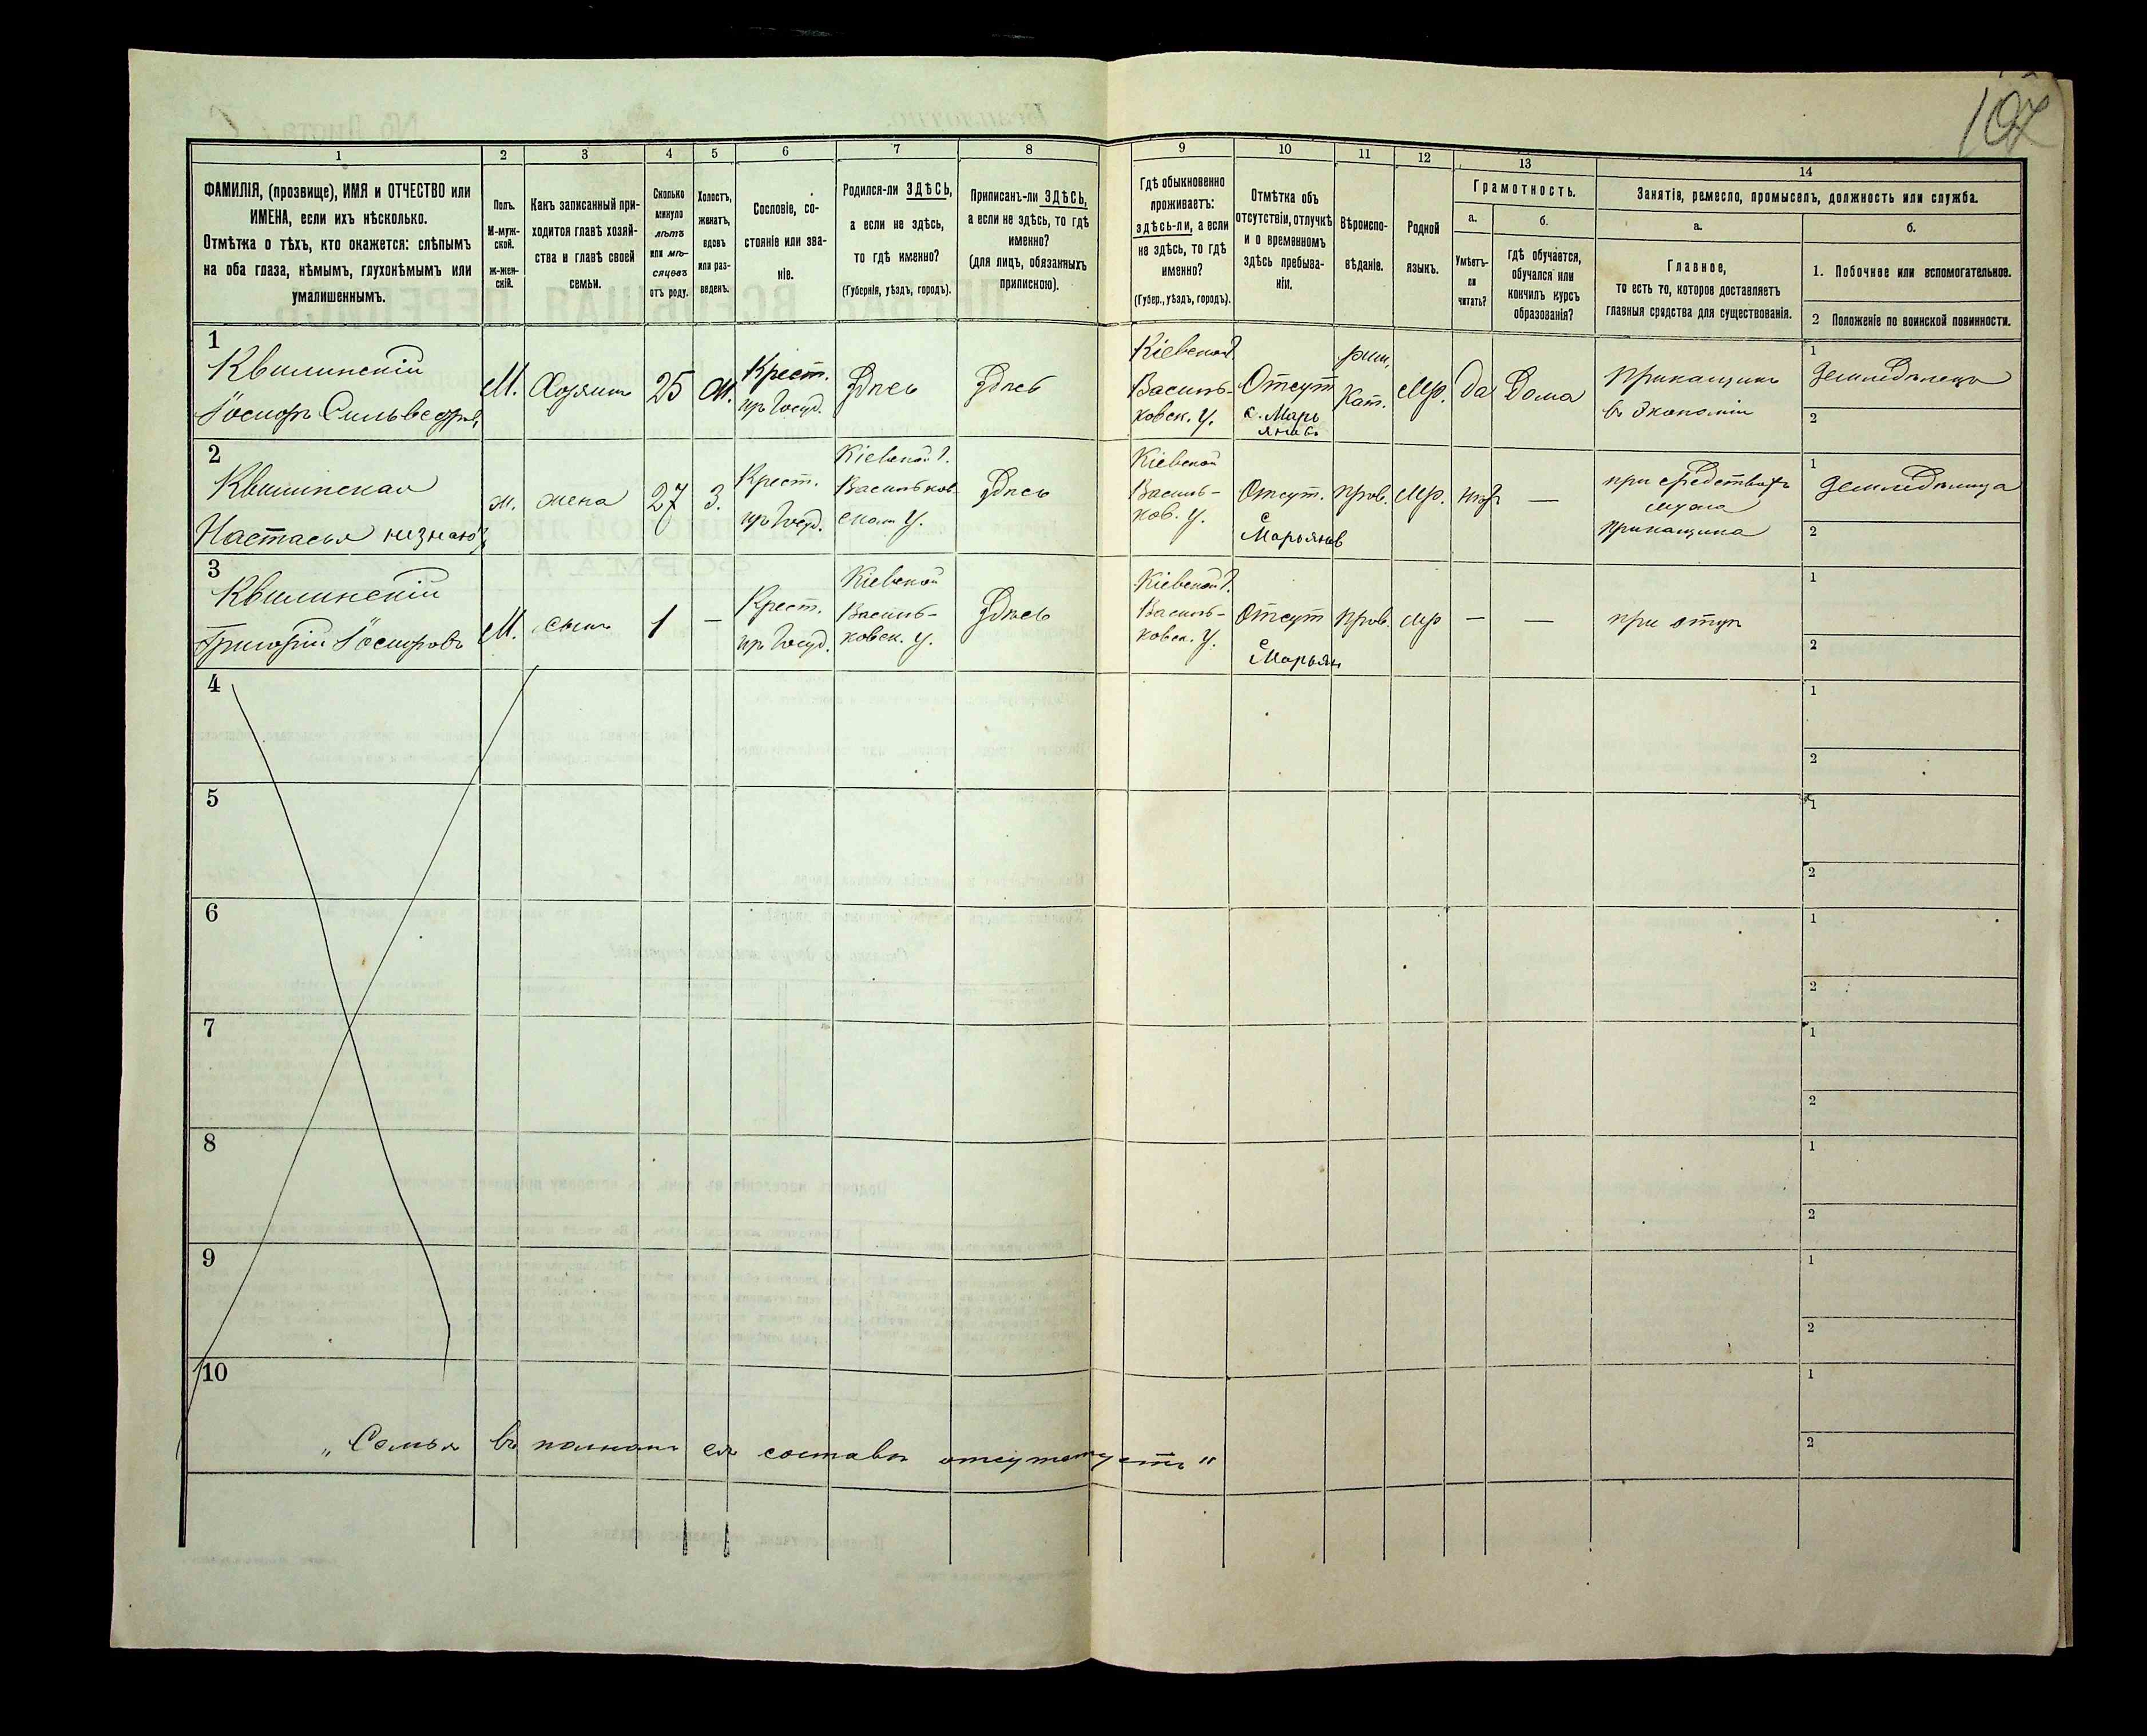 107
1 2 3 4 5 6 7 8 9 10 11 12 13 14
ФАМИЛІЯ, (прозвище), ИМЯ и ОТЧЕСТВО или
ИМЕНА, если ихъ нѣсколько.
Отмѣтка о тѣхъ, кто окажется: слѣпымъ
на оба глаза, нѣмымъ, глухонѣмымъ или
умалишеннымъ.
Полъ.
М-муж-
ской.
ж-жен-
скій.
Какъ записанный при-
ходится главѣ хозяй-
ства и главѣ своей
семьи.
Сколько
минуло
лѣтъ
или мѣ-
сяцевъ
отъ роду.
Холостъ,
женатъ,
вдовъ
или раз-
веденъ.
Сословіе, со-
стояніе или зва-
ніе.
Родился-ли ЗДѢСЬ,
а если не здѣсь,
то гдѣ именно?
(Губернія, уѣздъ, городъ).
Приписанъ-ли ЗДѢСЬ,
а если не здѣсь, то гдѣ
именно?
(для лицъ, обязанныхъ
припискою).
Гдѣ обыкновенно
проживаетъ:
здѣсь-ли, а если
не здѣсь, то гдѣ
именно?
(Губер., уѣздъ, городъ).
Отмѣтка объ
отсутствіи, отлучкѣ
и о временномъ
здѣсь пребыва-
ніи.
Вѣроиспо-
вѣданіе.
Родной
языкъ.
Грамотность.
а.
Умѣетъ-
ли
читать?
б.
гдѣ обучается,
обучался или
кончилъ курсъ
образованія?
Занятія, ремесло, промыселъ, должность или служба.
а.
Главное,
то есть то, которое доставляетъ
главныя средства для существованія.
б.
1. Побочное или вспомогательное.
2 Положеніе по воинской повинности.
1
Квилинскій
М.
Хозяин
25
ж.
Крест.
пр Госуд.
Здесь
Здесь
Кіевской г.
Василь-
ковск. У.
Отсут
с. Марь
яновъ
рим.
кат.
Мр.
Да
Дома
приказчик
в экономіи
1
земледелец
2
2
Квилинская
Настасья
ж.
жена
27
3.
Крест.
пр Госуд.
Кіевской г.
Васильков
ском У.
Здесь
Кіевской
Василь-
ков. У.
Отсут.
с
Марьянов
прав.
Мр.
—
при средствах
мужа
приказчика
1
2
3
Квилинскій
Григорій
М.
сын
1
—
Крест.
пр Госуд.
Кіевской
Василь-
ковск. У.
Здесь
Кіевской г.
Василь-
ковск. У.
Отсут
с
Марьян
прав.
мр
—
—
при отце
1
2
4
1
2
5
1
2
6
1
2
7
1
2
8
1
2
9
1
2
10
1
2
„Семья въ полномъ ея составе отсутствуетъ"